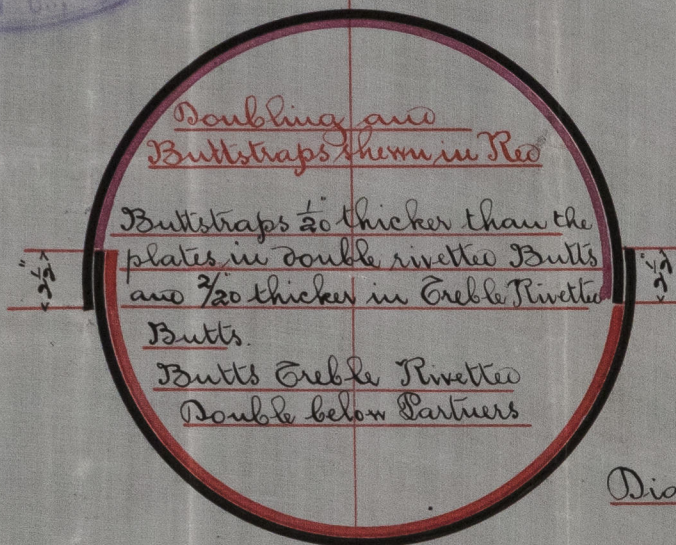 Doubling and
Buttstraps shewn in Red
Buttstraps 1/20" thicker than the
plates in double rivetted Butts
and 2/20" thicker in Treble Rivetted
Butts.
Butts Treble Rivetted
Double below Partners
2 1/2"
2 1/2"